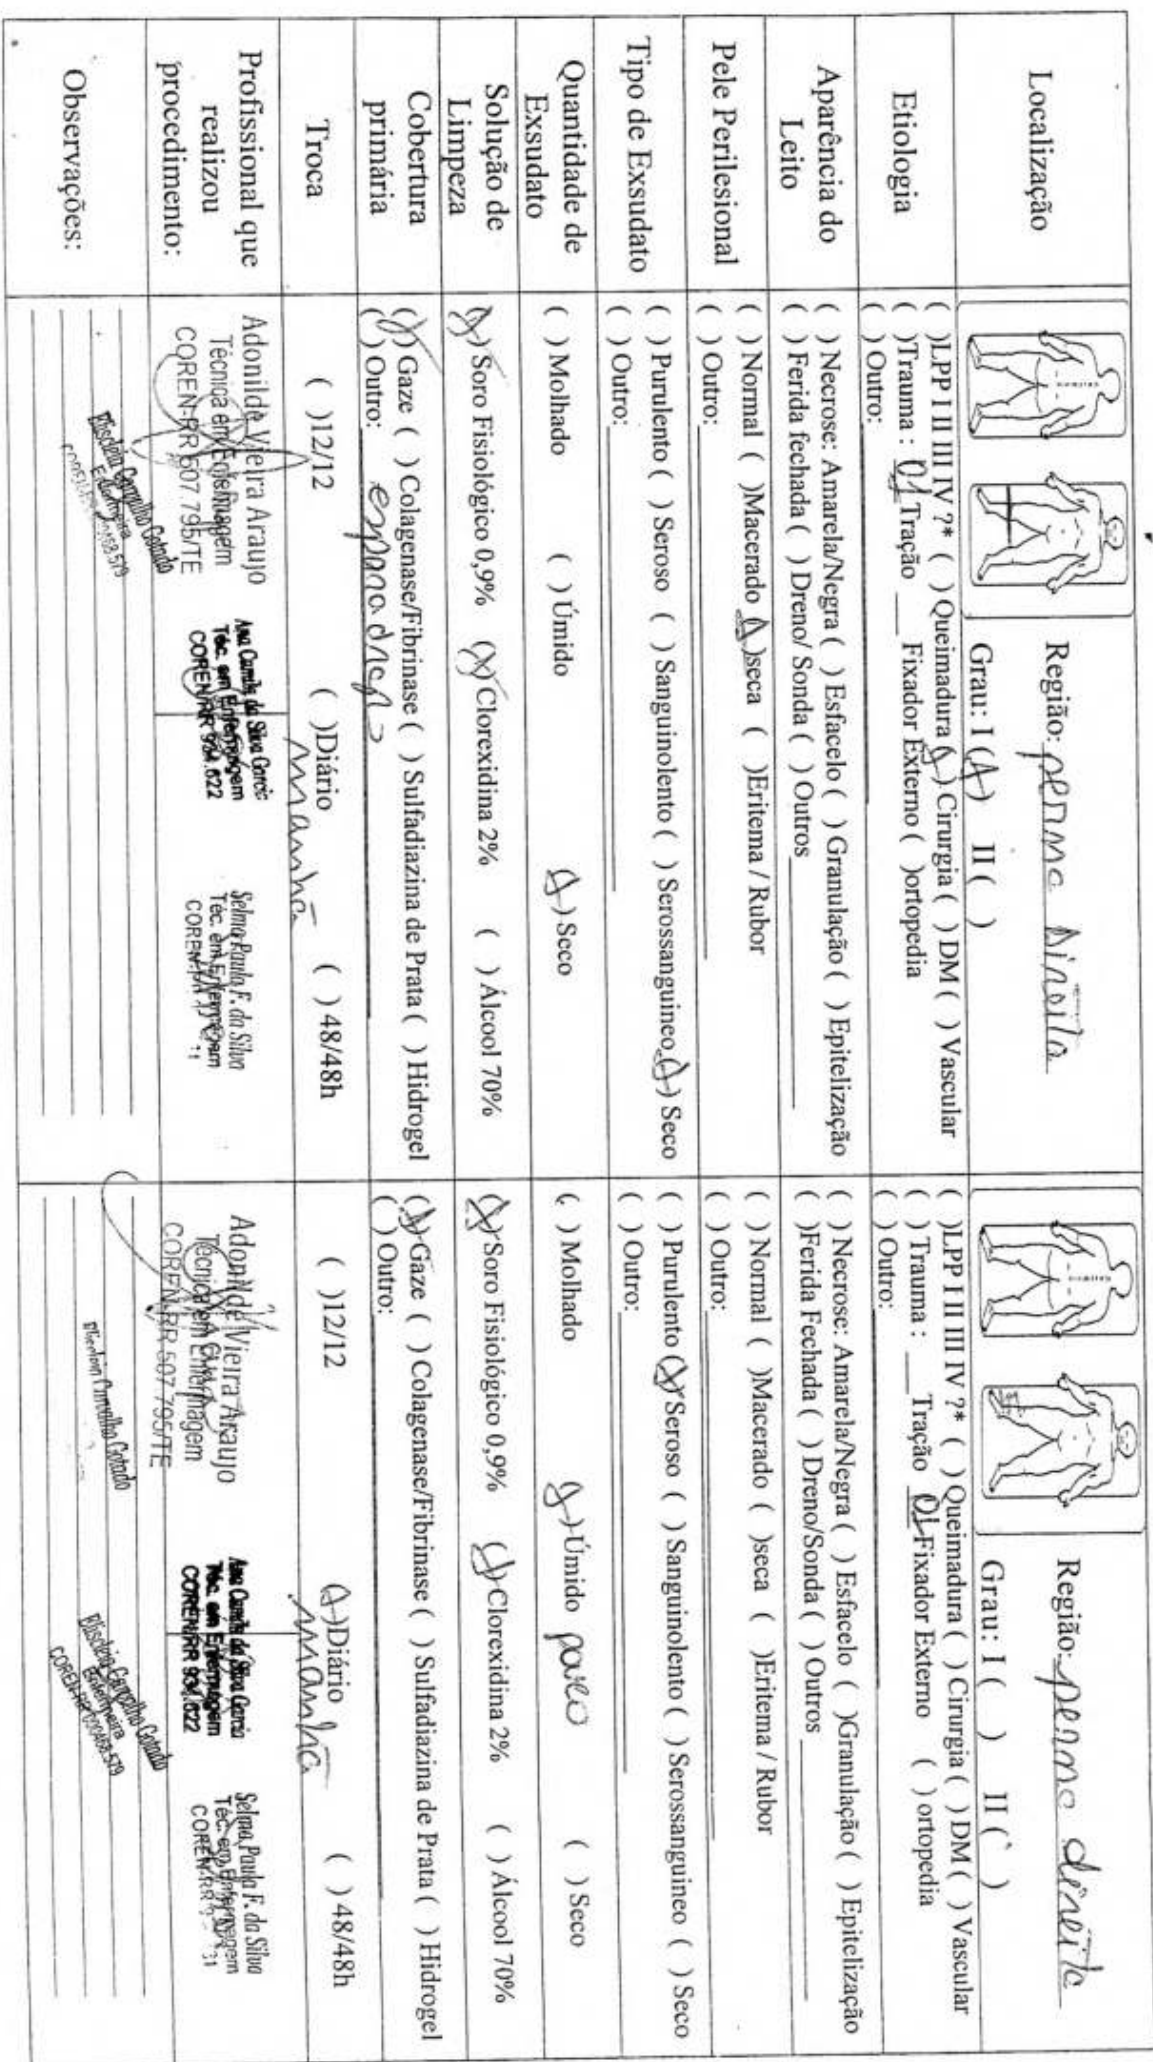 Localização
Região: perna direita
Grau: I (X) II ( )
Região: perna direita
Grau: I ( ) II ( )
Etiologia
( )LPP I II III IV ?* ( )Queimadura (X) Cirurgia ( ) DM ( ) Vascular
( )Trauma : 01 Tração ___ Fixador Externo ( )ortopedia
( )Outro:
( )LPP I II III IV ?* ( )Queimadura ( ) Cirurgia ( ) DM ( ) Vascular
( ) Trauma : ___ Tração 01 Fixador Externo ( ) ortopedia
( )Outro:
Aparência do
Leito
( ) Necrose: Amarela/Negra ( ) Esfacelo ( ) Granulação ( ) Epitelização
( ) Ferida fechada ( ) Dreno/ Sonda ( ) Outros
( ) Necrose: Amarela/Negra ( ) Esfacelo ( )Granulação ( ) Epitelização
( )Ferida Fechada ( ) Dreno/Sonda ( ) Outros
Pele Perilesional
( )Normal ( )Macerado (X)seca ( )Eritema / Rubor
( ) Outro:
( ) Normal ( )Macerado ( )seca ( )Eritema / Rubor
( ) Outro:
Tipo de Exsudato
( ) Purulento ( ) Seroso ( ) Sanguinolento ( ) Serossanguineo (X) Seco
( ) Outro:
( ) Purulento (X)Seroso ( ) Sanguinolento ( ) Serossanguineo ( ) Seco
( )Outro:
Quantidade de
Exsudato
( ) Molhado ( ) Úmido (X) Seco
( ) Molhado (X) Úmido pouco ( ) Seco
Solução de
Limpeza
(X) Soro Fisiológico 0,9% (X) Clorexidina 2% ( ) Álcool 70%
(X)Soro Fisiológico 0,9% (X)Clorexidina 2% ( ) Álcool 70%
Cobertura
primária
(X) Gaze ( ) Colagenase/Fibrinase ( ) Sulfadiazina de Prata ( ) Hidrogel
( ) Outro: esparadrapo
(X)Gaze ( )Colagenase/Fibrinase ( ) Sulfadiazina de Prata ( ) Hidrogel
( ) Outro:
Troca
( )12/12 ( )Diário manhã ( ) 48/48h
( )12/12 (X)Diário manhã ( ) 48/48h
Profissional que
realizou
procedimento:
Adonilde Vieira Araujo
Técnica em Enfermagem
COREN-RR 507.795/TE
Ana Camila da Silva Garcia
Téc. em Enfermagem
COREN/RR 934.622
Selma Paula F. da Silva
Téc. em Enfermagem
COREN-RR
Adonilde Vieira Araujo
Técnica em Enfermagem
COREN-RR 507.795/TE
Ana Camila da Silva Garcia
Téc. em Enfermagem
COREN/RR 934.622
Selma Paula F. da Silva
Téc. em Enfermagem
COREN-RR
Observações:
Carvalho Cotado
Enfermeira
Carvalho Cotado
Carvalho Cotado
Enfermeira
COREN-RR 000468.579